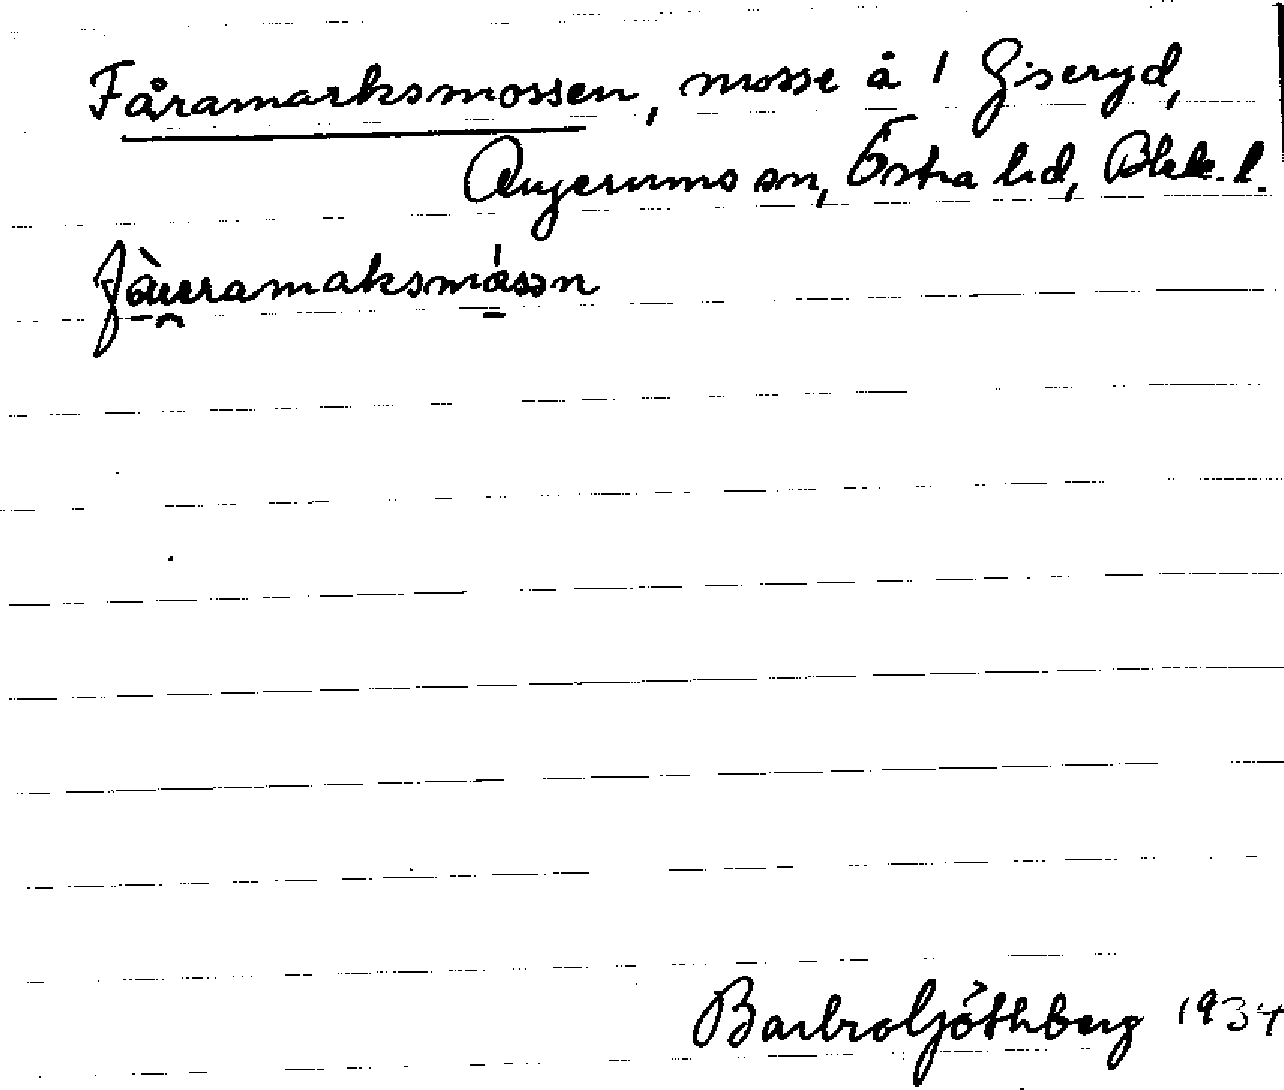 Fåramarksmossen, mosse å 1 Giseryd,
Augerums sn, Östra hd, Blek. l.
fàueramaksmásən
Barbro Göthberg 1934